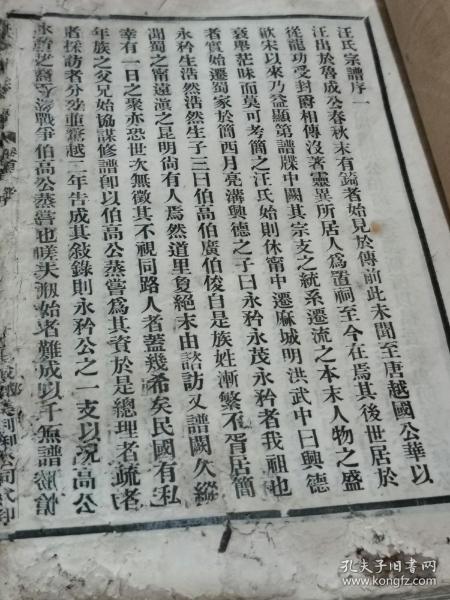 汪氏宗譜序一
汪出於魯成公春秋末有錡者始見於傳前此未聞至唐越國公華以
從龍功受封爵相傳沒著靈異所居人爲置祠至今在焉其後世居於
歙宋以來乃益顯第譜牒中闕其宗支之統系遷流之本末人物之盛
衰舉茫昧而莫可考簡之汪氏始則休甯中遷麻城明洪武中曰興德
者實始遷蜀家於簡西月亮溝興德之子曰永矜永茂永矜者我祖也
永矜生浩然浩然生子三曰伯高伯廣伯俊自是族姓漸繁不胥居簡
閬蜀之甯遠滇之昆明尙有人焉然道里夐絕末由諮訪又譜闕久縱
幸有一日之聚亦恐世次無徵其不視同路人者蓋幾希矣民國有私
年族之父兄始協謀修譜卽以伯高公蒸嘗爲其資於是總理者疏者
者採訪者分劝重釐越二年告成其敍錄則永矜公之一支以況高公
戰爭伯高公蒸嘗也嗟夫溯始者難成以千無譜
利公司代印
孔夫子旧书网
www.kongfz.com